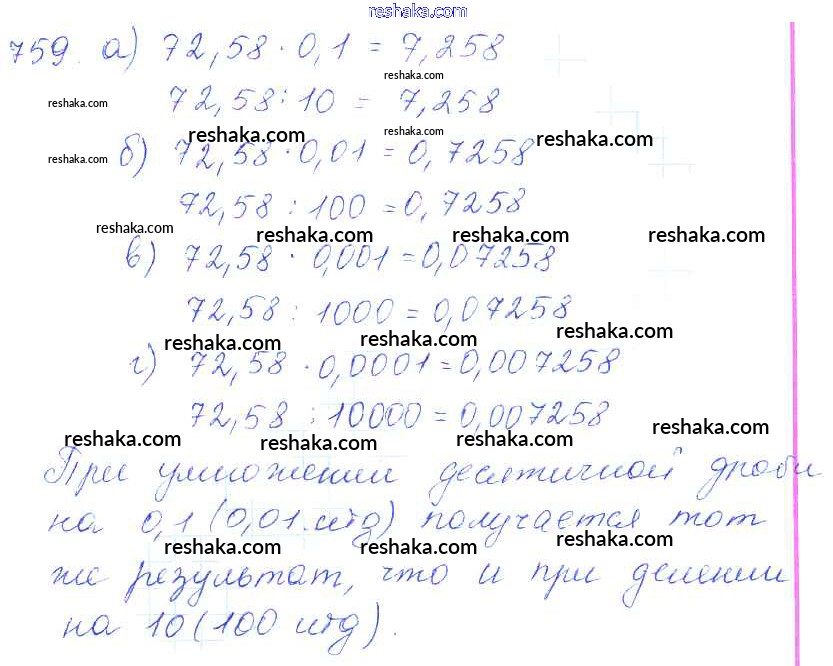 reshaka.com
759. а) 72,58 · 0,1 = 7,258
reshaka.com
72,58 : 10 = 7,258
reshaka.com
reshaka.com reshaka.com reshaka.com
б) 72,58 · 0,01 = 0,7258
reshaka.com
72,58 : 100 = 0,7258
reshaka.com reshaka.com reshaka.com reshaka.com
в) 72,58 · 0,001 = 0,07258
72,58 : 1000 = 0,07258
reshaka.com reshaka.com reshaka.com
г) 72,58 · 0,0001 = 0,007258
72,58 : 10000 = 0,007258
reshaka.com reshaka.com reshaka.com reshaka.com
При умножении десятичной дроби
на 0,1 (0,01 итд) получается тот
reshaka.com reshaka.com reshaka.com
же результат, что и при делении
на 10 (100 итд).